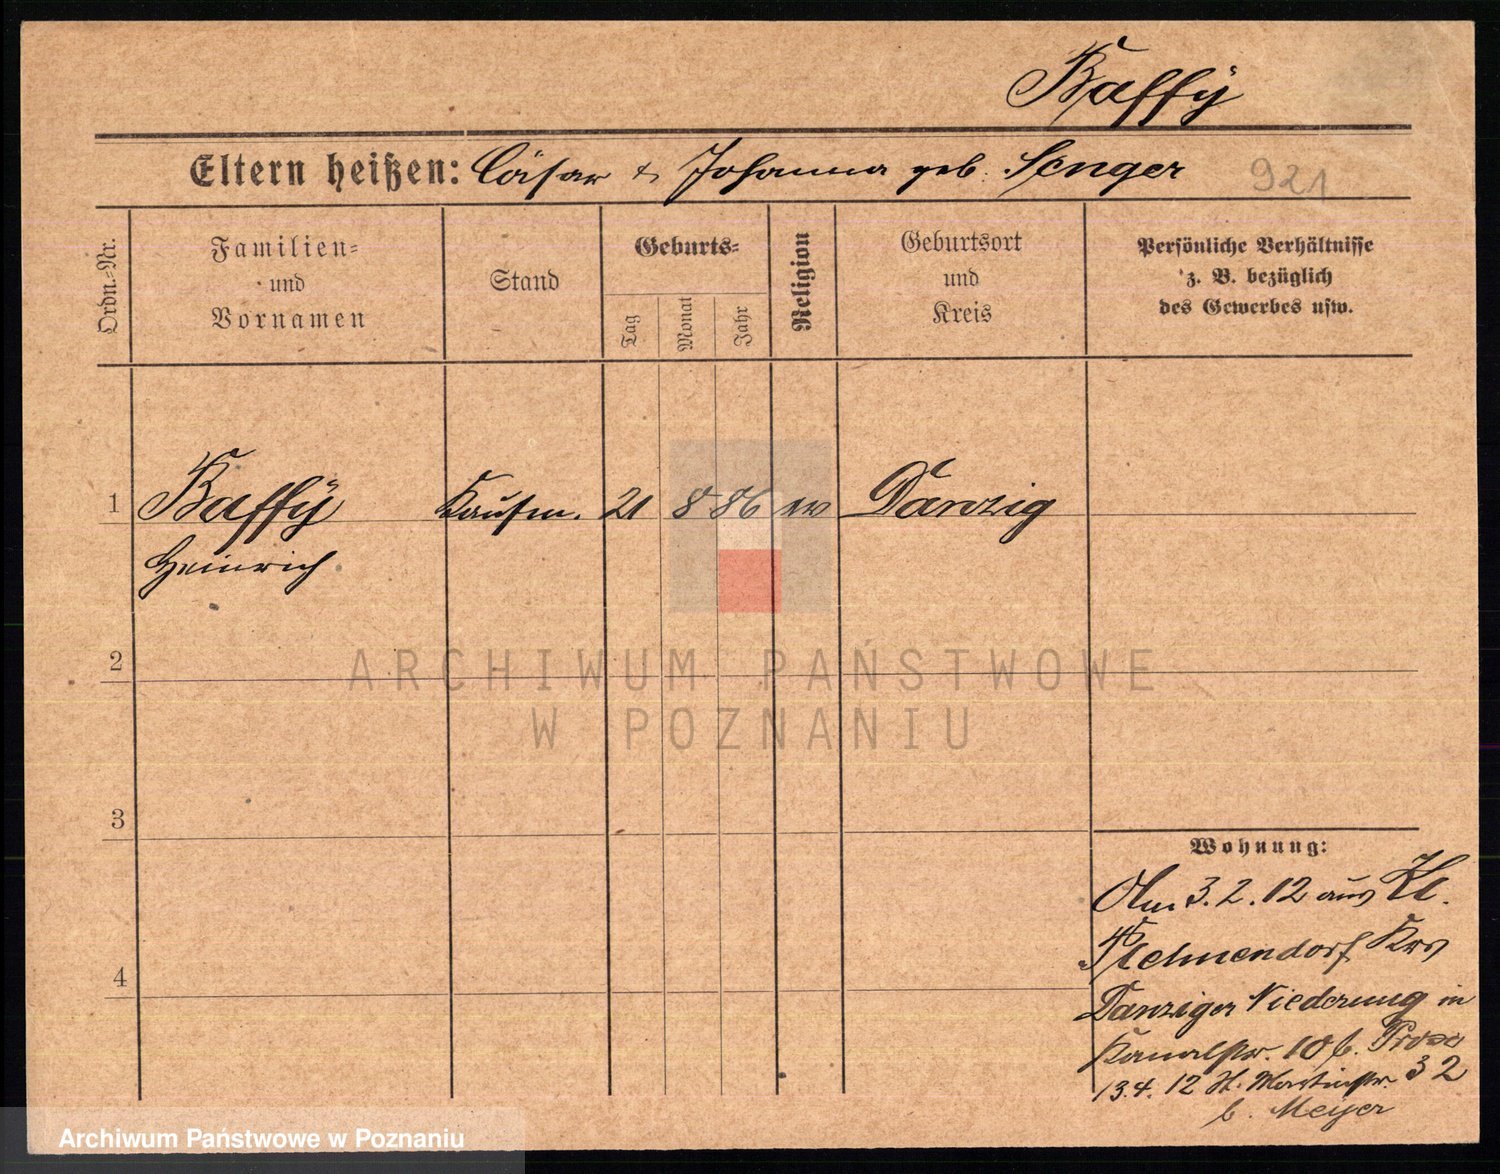 Baffÿ
Eltern heißen: Cäsar & Johanna geb. Senger 921
Ordn.-Nr.
Familien-
und
Vornamen
Stand
Geburts-
Tag
Monat
Jahr
Religion
Geburtsort
und
Kreis
Persönliche Verhältnisse
z. B. bezüglich
des Gewerbes usw.
1 Baffÿ Kaufm. 21 8 86 ev Danzig
Heinrich
2
3
4
Wohnung:
Am 3.2.12 aus Kl.
Krs
Danziger Niederung in
Kanalstr. 10 b.
13.4.12 St. Martinstr. 32
b. Meyer
ARCHIWUM PAŃSTWOWE
W POZNANIU
Archiwum Państwowe w Poznaniu